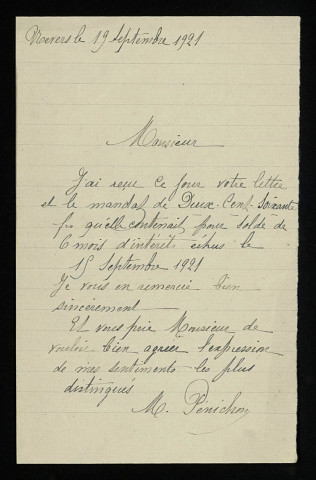 Nevers le 19 Septembre 1921
Monsieur
J'ai reçu ce jour votre lettre
et le mandat de Deux-Cent-Soixante
frs qu'elle contenait pour solde de
6 mois d'intérêts échus le
15 Septembre 1921
Je vous en remercie bien
sincèrement
Et vous prie Monsieur de
vouloir bien agréer l'expression
de mes sentiments les plus
distingués
M. Pénichon